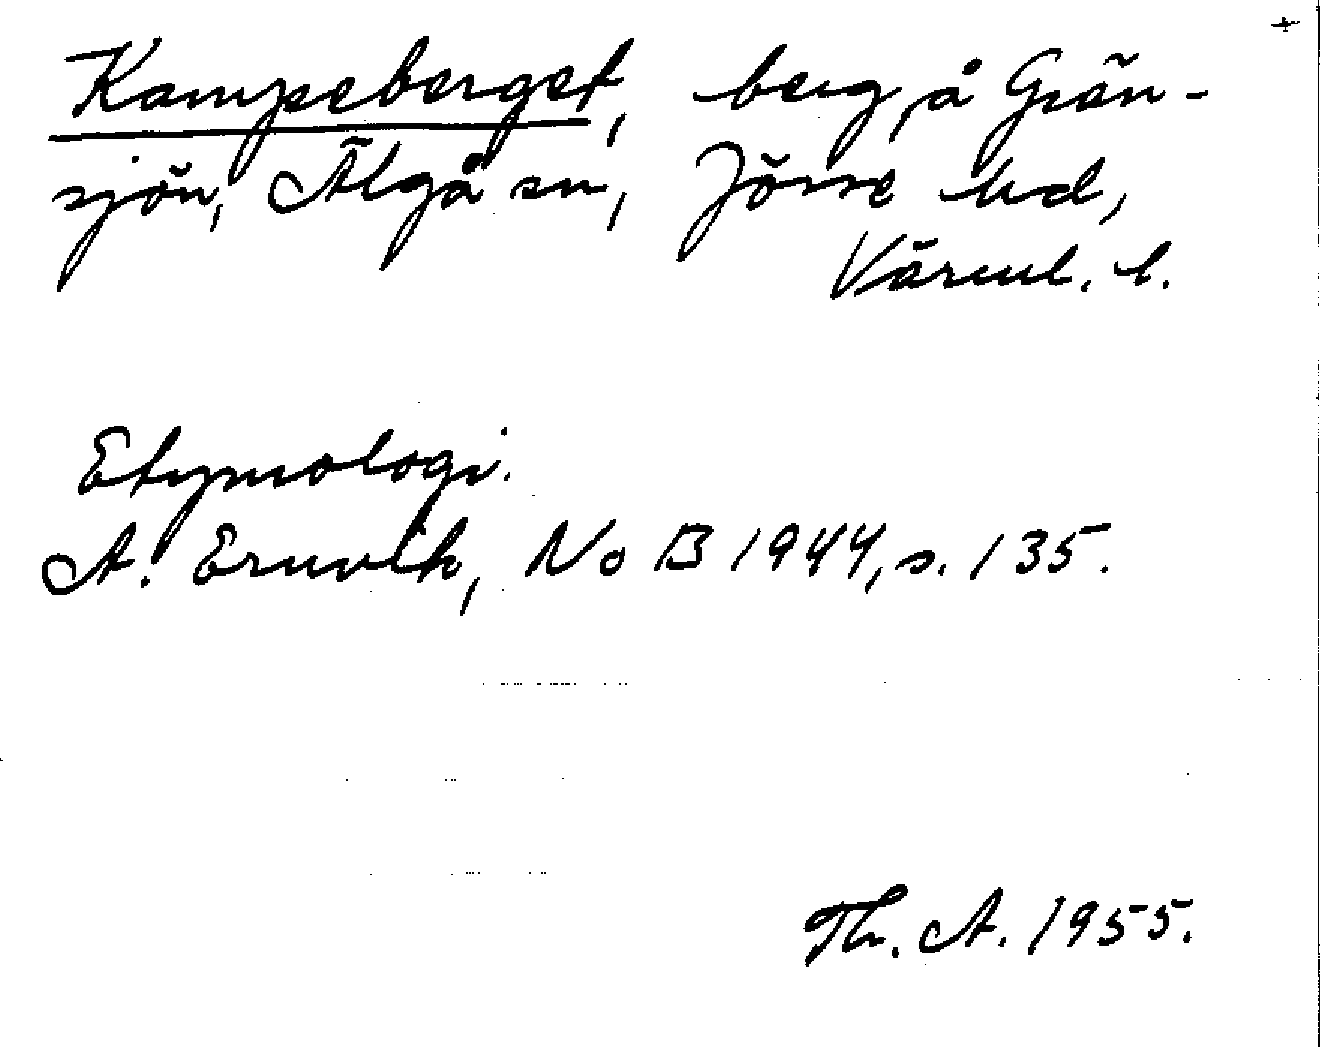 +
Kampeberget, berg på Grän-
sjön, Älgå sn, Jösse hd,
Värml. l.
Etymologi.
A. Ernvik, NoB 1944, s. 135.
Th. A. 1955.